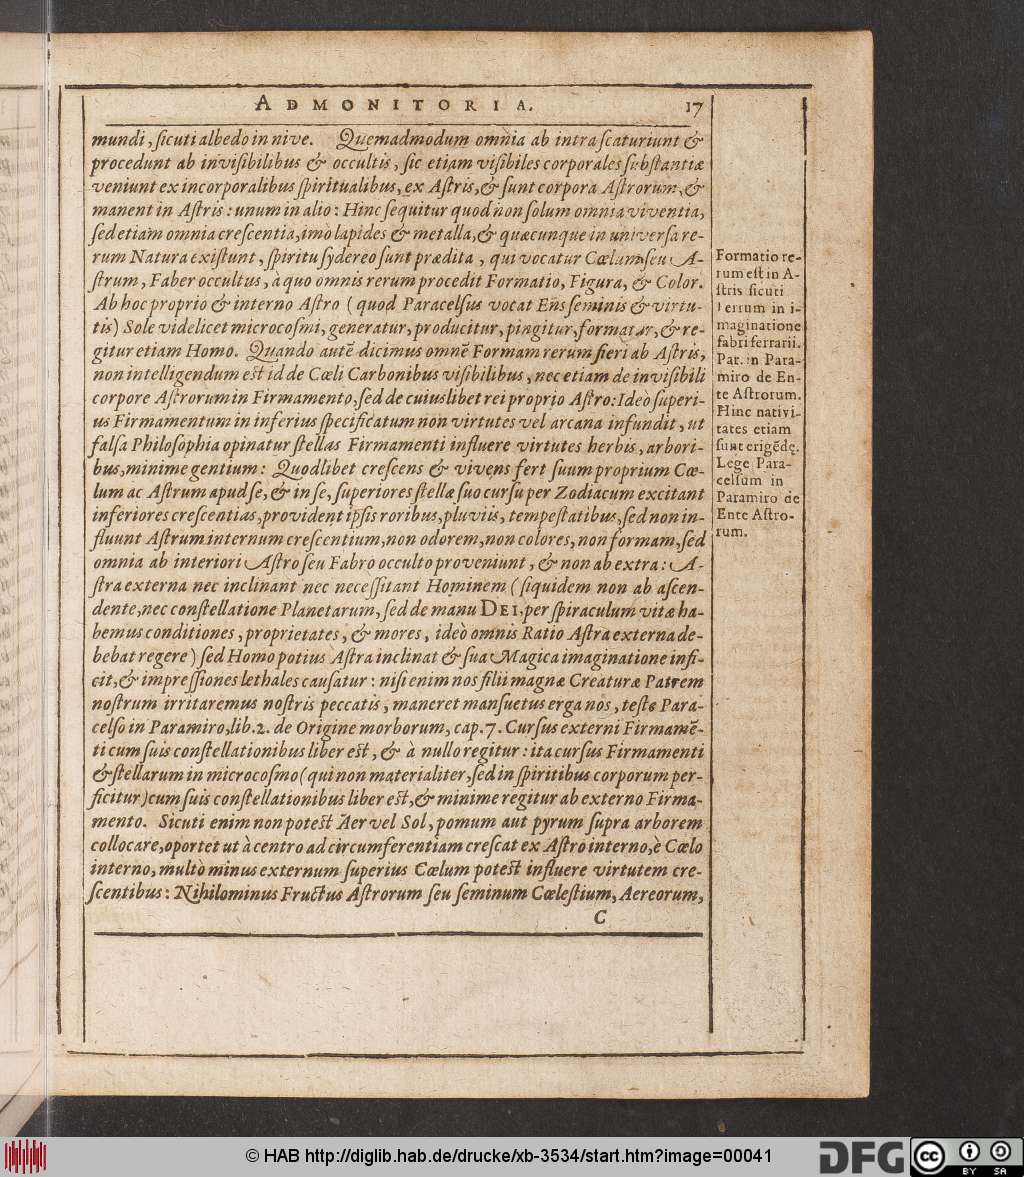 ADMONITORIA. 17
mundi, sicuti albedo in nive. Quemadmodum omnia ab intra scaturiunt &
procedunt ab invisibilibus & occultis, sic etiam visibiles corporales substantiæ
veniunt ex incorporalibus spiritualibus, ex Astris, & sunt corpora Astrorum, &
manent in Astris: unum in alio: Hinc sequitur quod non solum omnia viventia,
sed etiam omnia crescentia, imò lapides & metalla, & quæcunque in universa re-
rum Natura existunt, spiritu sydereo sunt prædita, qui vocatur Cœlum seu A-
strum, Faber occultus, à quo omnis rerum procedit Formatio, Figura, & Color.
Ab hoc proprio & interno Astro (quod Paracelsus vocat Ens seminis & virtu-
tis) Sole videlicet microcosmi, generatur, producitur, pingitur, formatur, & re-
gitur etiam Homo. Quando autē dicimus omnē Formam rerum fieri ab Astris,
non intelligendum est id de Cœli Carbonibus visibilibus, nec etiam de invisibili
corpore Astrorum in Firmamento, sed de cuiuslibet rei proprio Astro: Ideo superi-
us Firmamentum in inferius specificatum non virtutes vel arcana infundit, ut
falsa Philosophia opinatur stellas Firmamenti influere virtutes herbis, arbori-
bus, minime gentium: Quodlibet crescens & vivens fert suum proprium Cœ-
lum ac Astrum apud se, & in se, superiores stellæ suo cursu per Zodiacum excitant
inferiores crescentias, provident ipsis roribus, pluviis, tempestatibus, sed non in-
fluunt Astrum internum crescentium, non odorem, non colores, non formam, sed
omnia ab interiori Astro seu Fabro occulto proveniunt, & non ab extra: A-
stra externa nec inclinant nec necessitant Hominem (siquidem non ab ascen-
dente, nec constellatione Planetarum, sed de manu DEI, per spiraculum vitæ ha-
bemus conditiones, proprietates, & mores, ideò omnis Ratio Astra externa de-
bebat regere) sed Homo potius Astra inclinat & sua Magica imaginatione infi-
cit, & impressiones lethales causatur: nisi enim nos filii magnæ Creaturæ Patrem
nostrum irritaremus nostris peccatis, maneret mansuetus erga nos, teste Para-
celso in Paramiro, lib. 2. de Origine morborum, cap. 7. Cursus externi Firmamē-
ti cum suis constellationibus liber est, & à nullo regitur: ita cursus Firmamenti
& stellarum in microcosmo (qui non materialiter, sed in spiritibus corporum per-
ficitur) cum suis constellationibus liber est, & minime regitur ab externo Firma-
mento. Sicuti enim non potest Aer vel Sol, pomum aut pyrum supra arborem
collocare, oportet ut à centro ad circumferentiam crescat ex Astro interno, è Cœlo
interno, multò minus externum superius Cœlum potest influere virtutem cre-
scentibus: Nihilominus Fructus Astrorum seu seminum Cœlestium, Aereorum,
C
Formatio re-
rum est in A-
stris sicuti
ferrum in i-
maginatione
fabri ferrarii.
Par. in Para-
miro de En-
te Astrorum.
Hinc nativi-
tates etiam
sunt erigēdę.
Lege Para-
celsum in
Paramiro de
Ente Astro-
rum.
© HAB http://diglib.hab.de/drucke/xb-3534/start.htm?image=00041
DFG
cc
BY SA